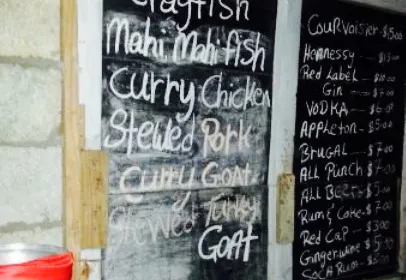 Crayfish
Mahi Mahi fish
Curry Chicken
Stewed Pork
Curry Goat
Stewed Turkey
Goat
Courvoisier - $15.00
Hennessy - $15.00
Red Label - $10.00
Gin - $7.00
VODKA - $6.00
APPleton - $5.00
BRUGAL - $7.00
ALL PUNCH $7.00
ALL BEER - $5.00
Rum & Coke - $7.00
Red Cap - $3.00
Ginger wine $5.00
Soca Rum -